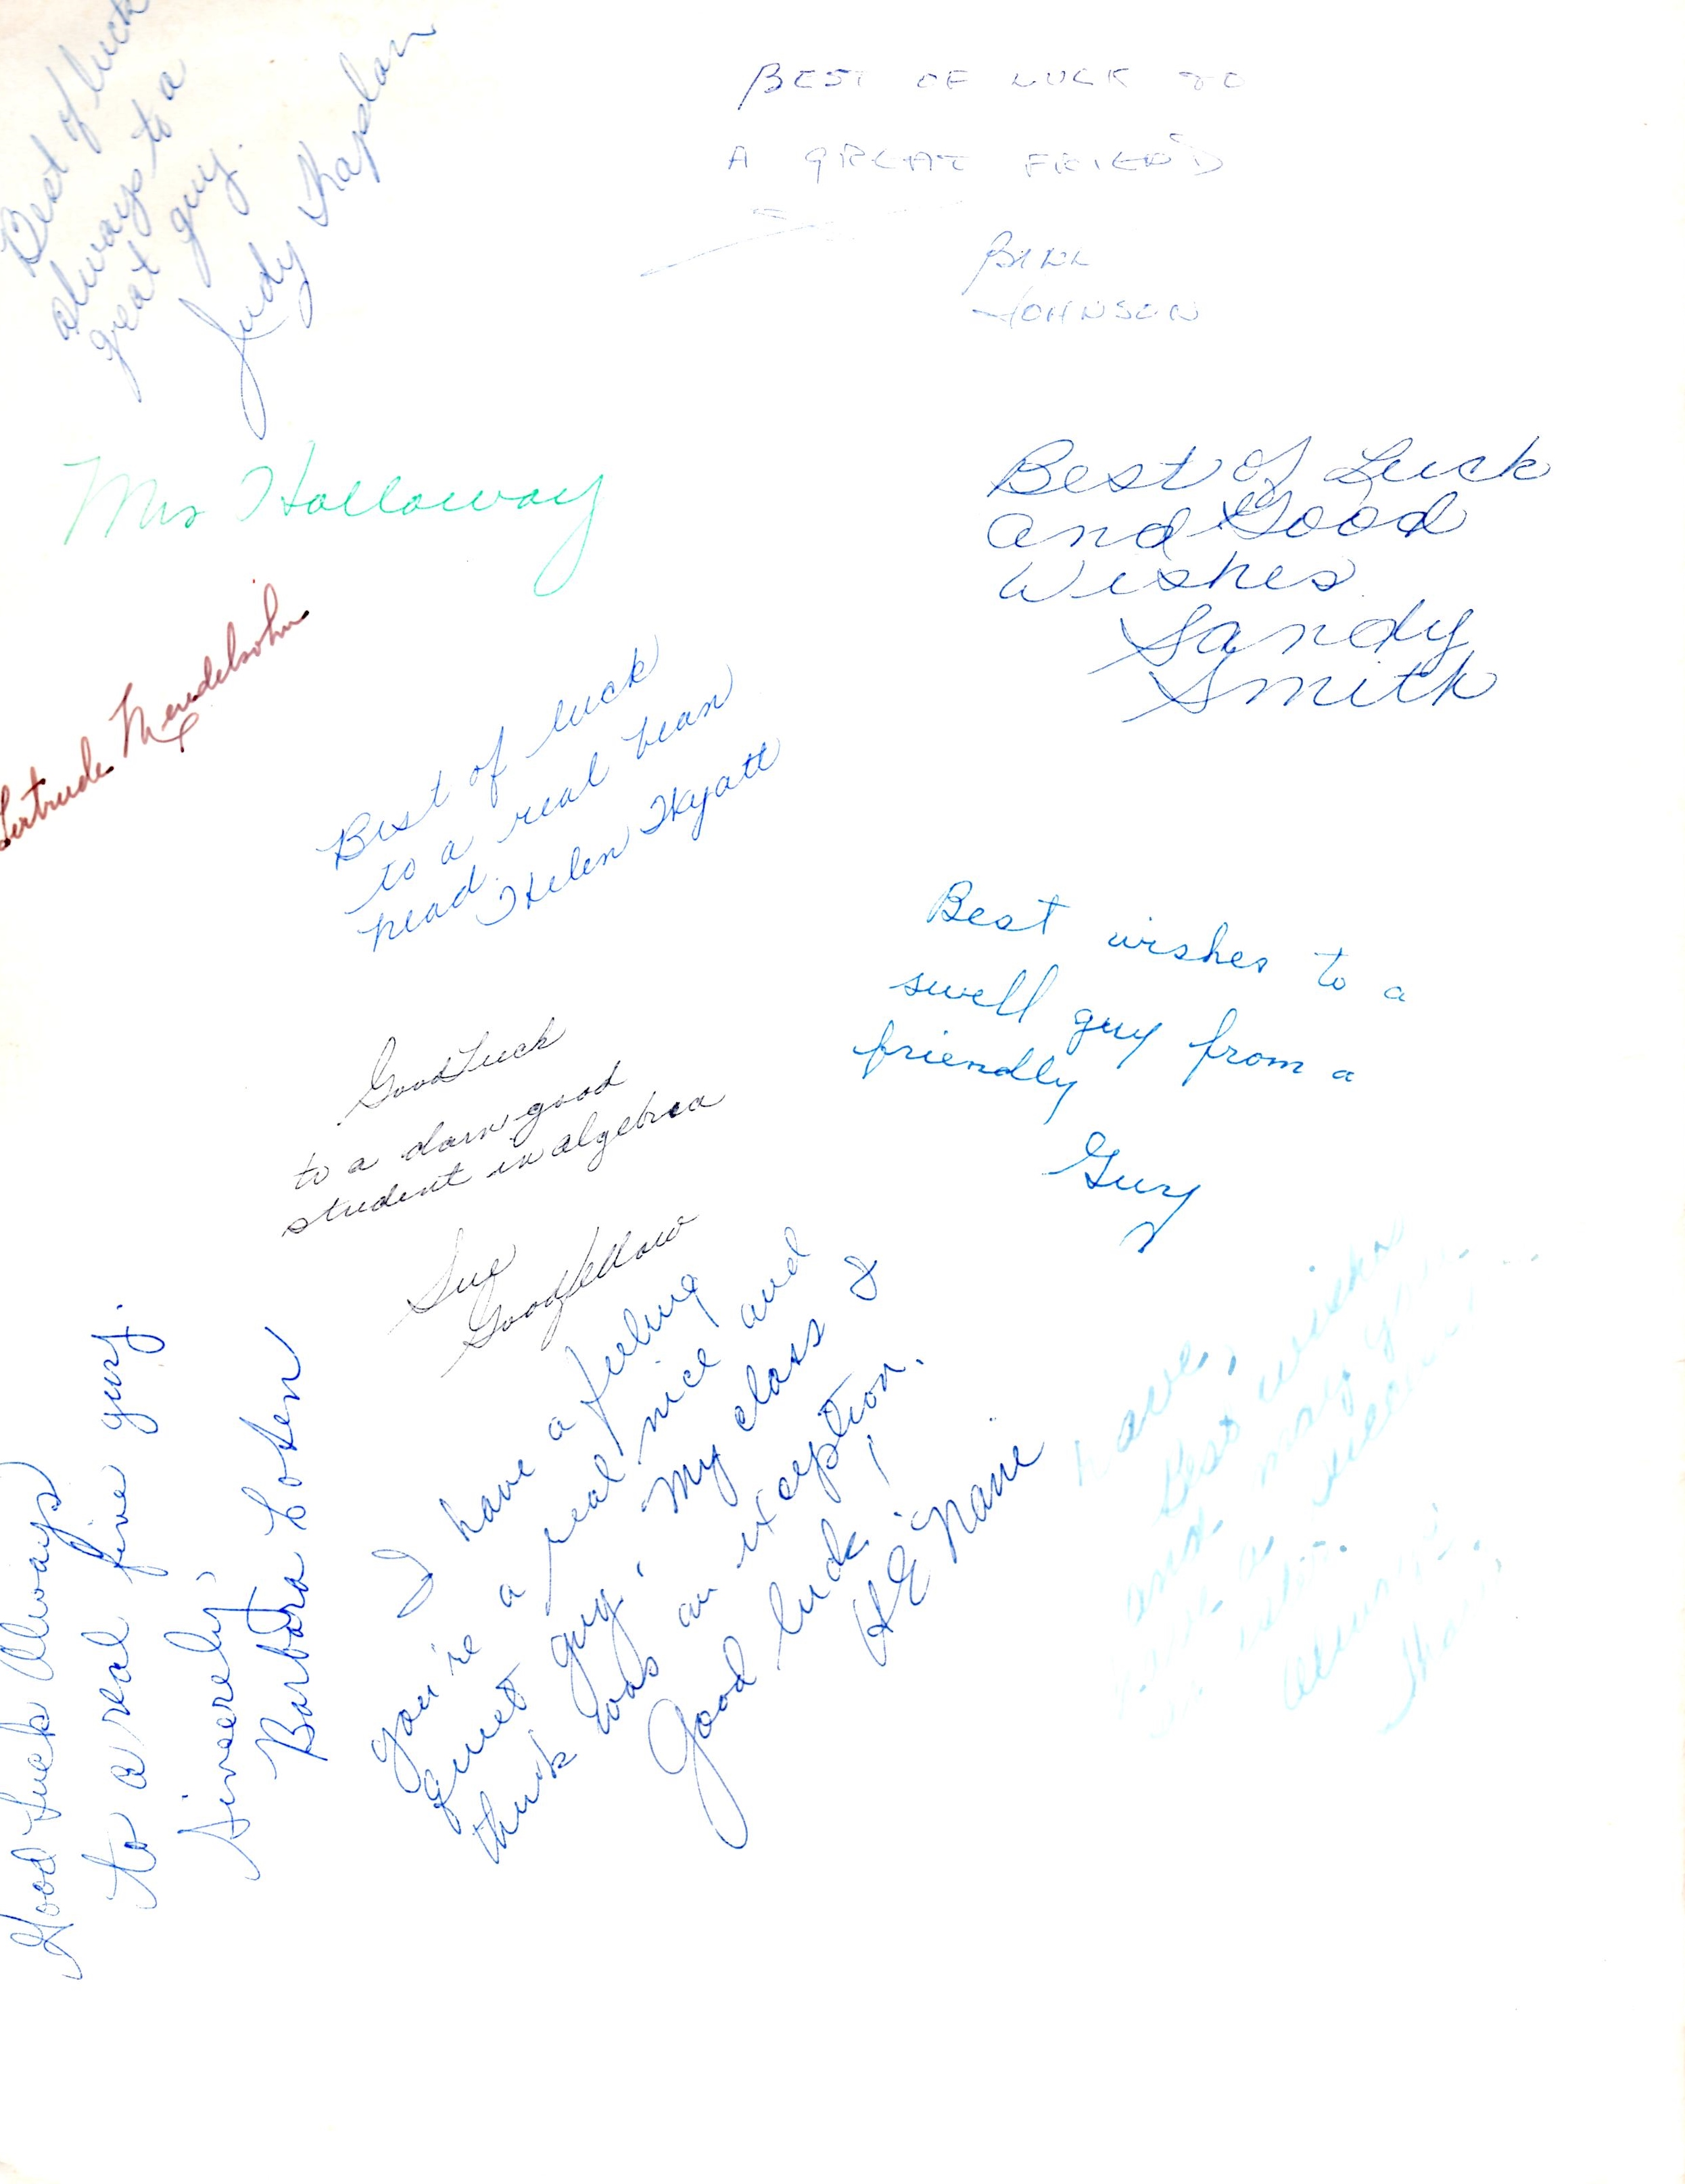 Best of luck
always to a
great guy.
Judy Kaplan
BEST OF LUCK TO
A GREAT FRIEND
BILL
JOHNSON
Mrs Holloway
Best of Luck
and Good
Wishes
Sandy
Smith
Gertrude Mendelsohn
Best of luck
to a real bean
head.
Helen Wyatt
Best wishes to a
swell guy from a
friendly
Guy
Good Luck
to a darn good
student in algebra
Sue
Goodfellow
I have a feeling
you're a real nice and
quiet guy. My class I
think was an exception.
Good luck!
Good Luck Always
to a real fine guy.
Sincerely,
Barbara
Best wishes
and may you